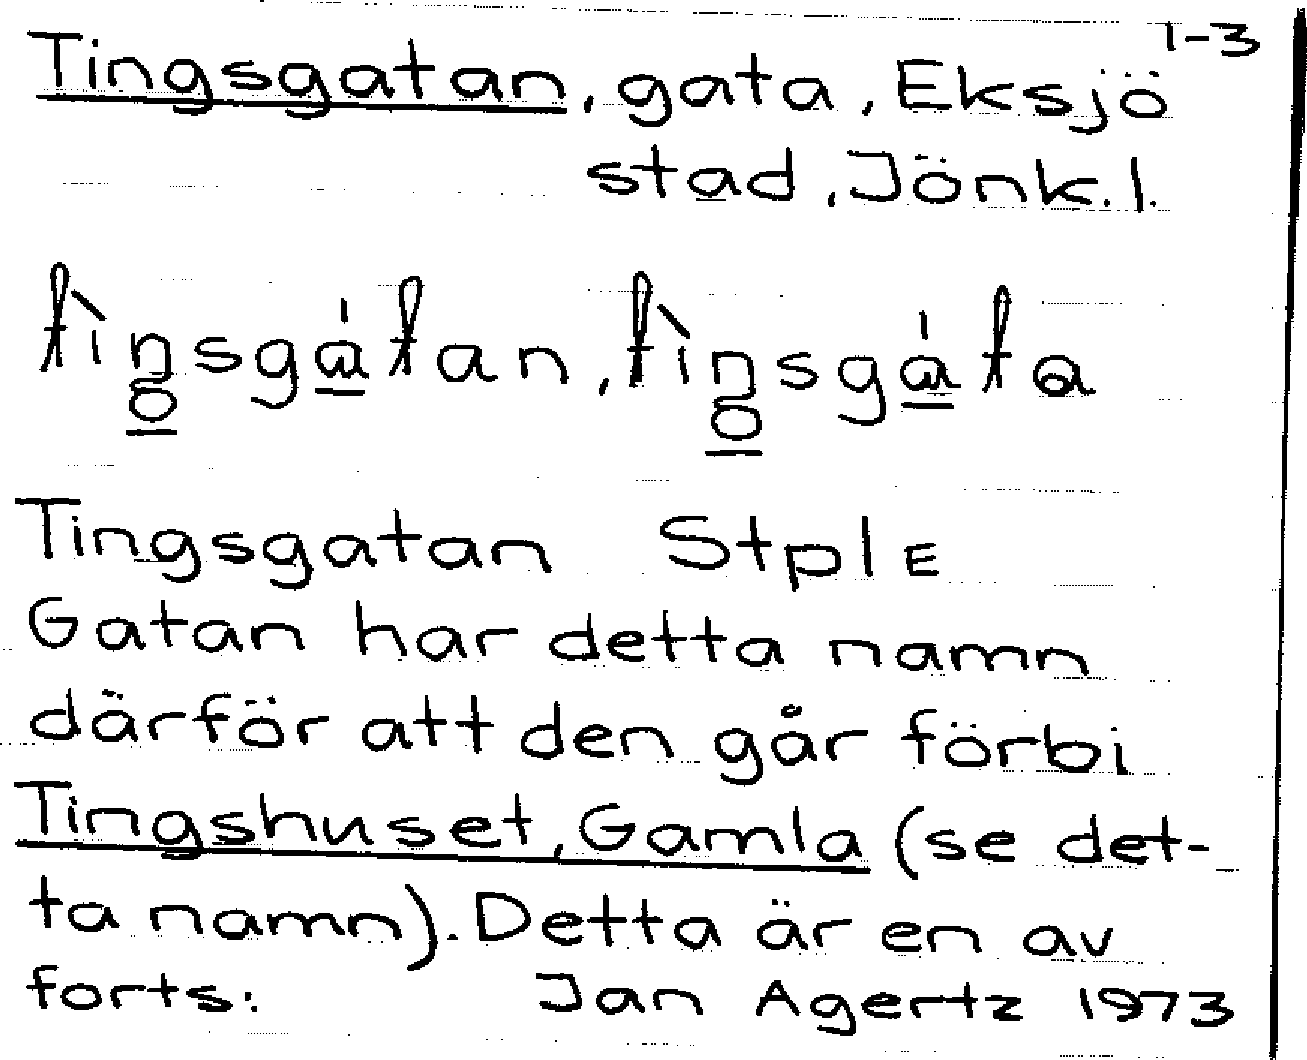 1-3
Tingsgatan, gata, Eksjö
stad, Jönk.l.
Tingsgatan StplE
Gatan har detta namn
därför att den går förbi
Tingshuset, Gamla (se det-
ta namn). Detta är en av
forts: Jan Agertz 1973